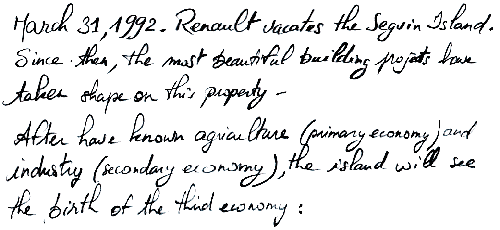 March 31, 1992. Renault vacates the Seguin Island.
Since then, the most beautiful building projets have
taken shape on this property -
After have known agriculture (primary economy) and
industry (secondary economy), the island will see
the birth of the third economy :